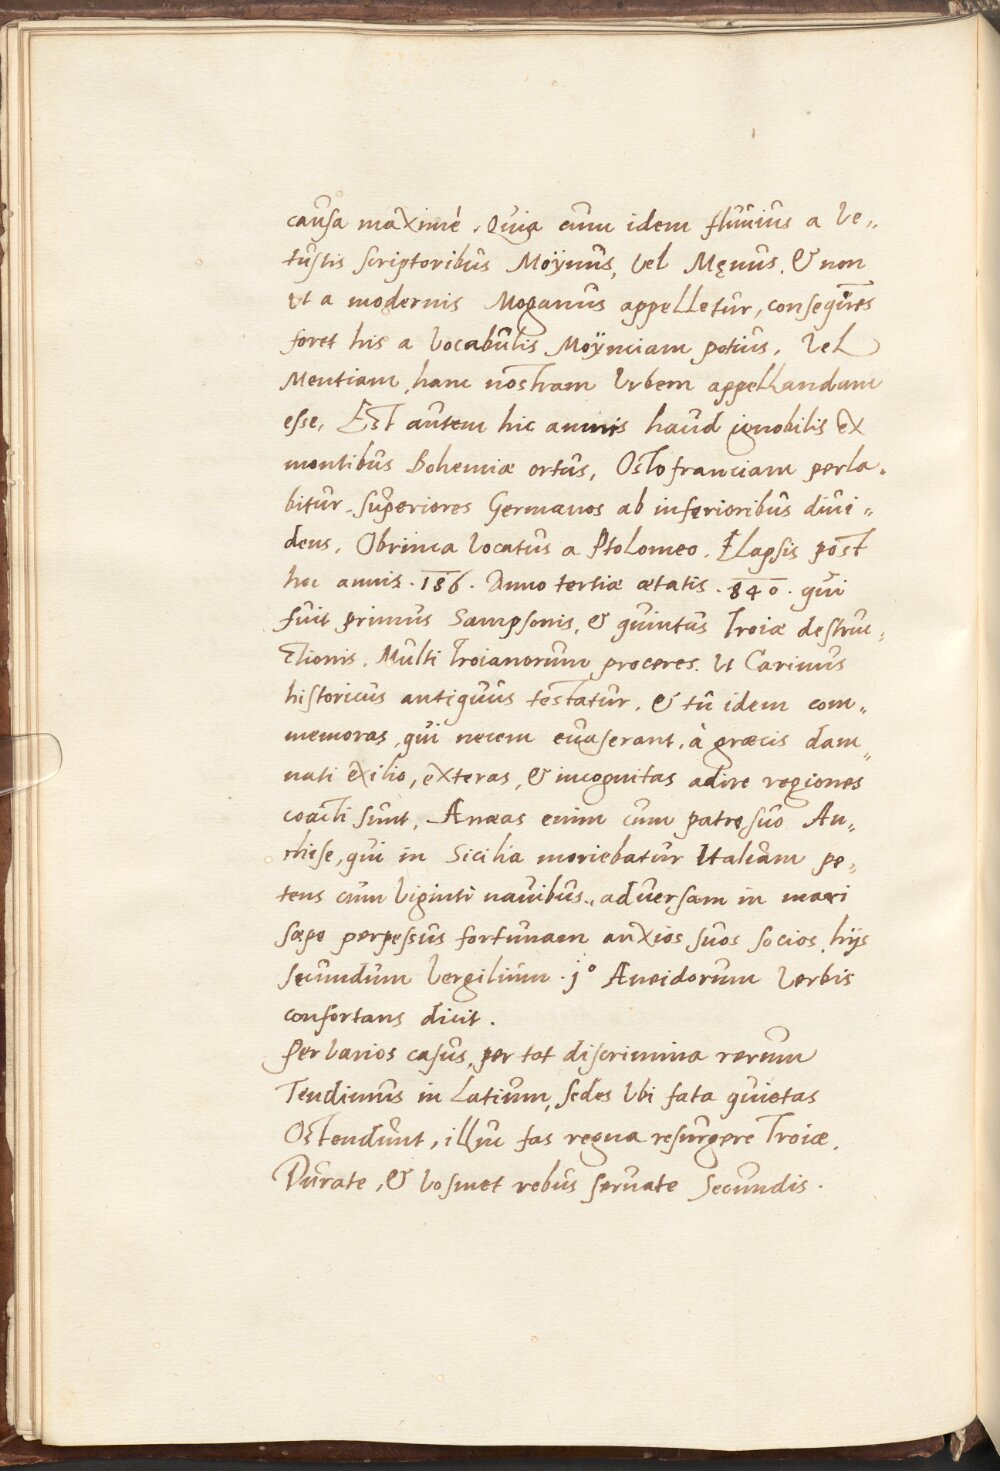 causa maximè. Quia cum idem fluuius a ve„
tustis scriptoribus Moÿnus, vel Męnus, & non
vt a modernis Moganus appelletur, consequēs
foret his a vocabulis Moÿnciam potius, vel
Mentiam, hanc nostram vrbem appellandam
esse, Est autem hic amnis haud ignobilis ex
montibus Bohemiæ ortus, Ostofranciam perla„
bitur, superiores Germanos ab inferioribus diui„
dens, Obrinca vocatus a Ptolomeo. Elapsis post
hoc annis. 186. Anno tertiæ ætatis. 840. qui
fuit primus Sampsonis, & quintus Troiæ destruc„
tionis. Multi Troianorum proceres. Vt Carinus
historicus antiquus testatur. & tu idem com„
memoras, qui necem euaserant, à græcis dam„
nati exilio, exteras, & incognitas adire regiones
coacti sunt, Ænæas enim cum patre suo An„
chise, qui in Sicilia moriebatur Italiam pe„
tens cum viginti nauibus, aduersam in mari
sæpe perpessus fortunam anxios suos socios, hijs
secundum Vergilium. j° Æneidorum verbis
confortans dicit.
Per varios casus, per tot discrimina rerum
Tendimus in Latium, sedes vbi fata quietas
Ostendunt, illic fas regna resurgere Troiæ,
Durate, & vosmet rebus seruate Secundis.